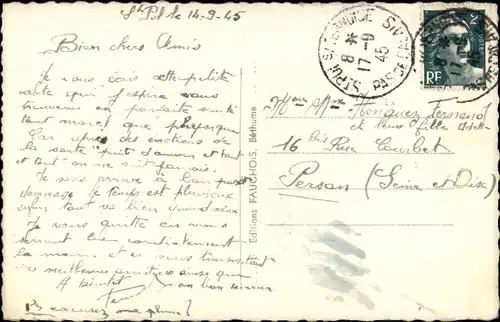 St Pol le 14-9-45
Bien chers Amis
Je vous écris cette petite
carte qui j'espère vous
trouvera en parfaite santé
tant moral que physique
Car après des émotions de
la sorte
et tant on ne sait jamais.
Je suis arrivé à bon port
dommage le temps est pluvieux
enfin tout va bien quand même
Je vous quitte en vous
serrant bien cordialement
la main et en vous transmettant
mes meilleures amitiés ainsi que
A bientôt
excusez ma plume
Editions FAUCHOIS, Béthune
ST POL-S-TERNOISE
8 *
17-9
45
PAS DE CALAIS
RF
Mr et Mme Fernand
et leur fille Odette
16 bis Rue Courbet
Persan (Seine et Oise)